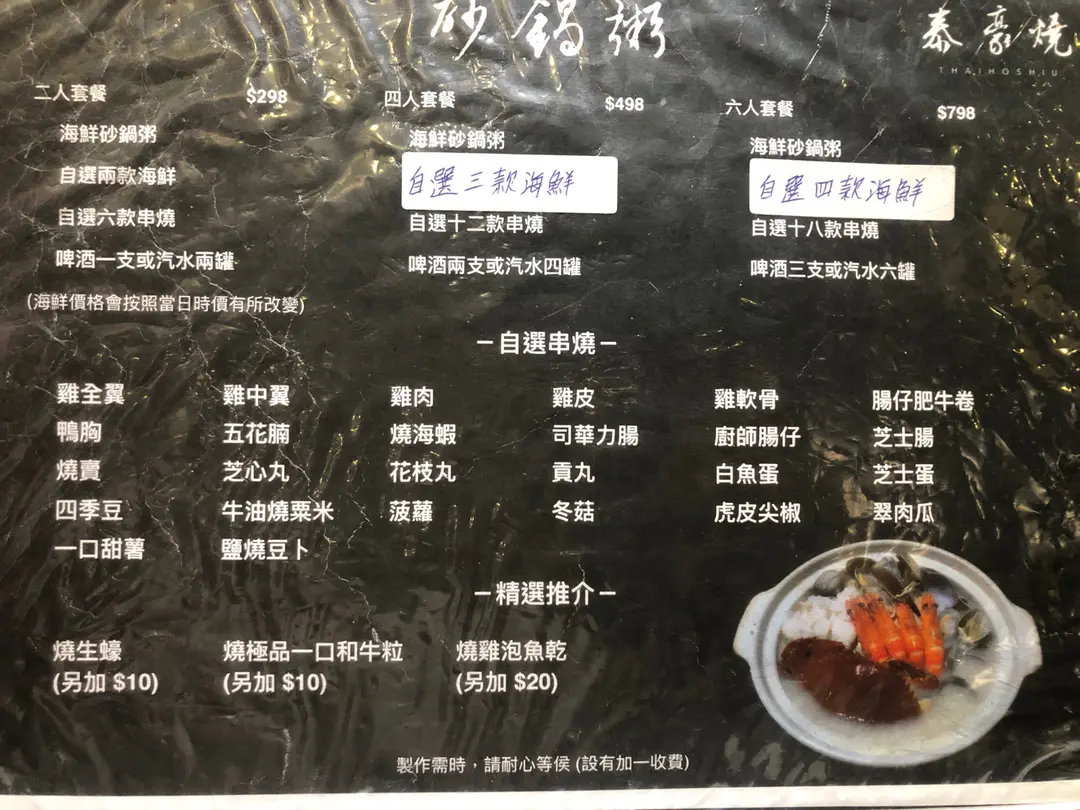 砂鍋粥
泰豪燒
THAIHOSHIU
二人套餐 $298
海鮮砂鍋粥
自選兩款海鮮
自選六款串燒
啤酒一支或汽水兩罐
(海鮮價格會按照當日時價有所改變)
四人套餐 $498
海鮮砂鍋粥
自選三款海鮮
自選十二款串燒
啤酒兩支或汽水四罐
六人套餐 $798
海鮮砂鍋粥
自選四款海鮮
自選十八款串燒
啤酒三支或汽水六罐
－自選串燒－
雞全翼 雞中翼 雞肉 雞皮 雞軟骨 腸仔肥牛卷
鴨胸 五花腩 燒海蝦 司華力腸 廚師腸仔 芝士腸
燒賣 芝心丸 花枝丸 貢丸 白魚蛋 芝士蛋
四季豆 牛油燒粟米 菠蘿 冬菇 虎皮尖椒 翠肉瓜
一口甜薯 鹽燒豆卜
－精選推介－
燒生蠔 燒極品一口和牛粒 燒雞泡魚乾
(另加 $10) (另加 $10) (另加 $20)
製作需時，請耐心等侯 (設有加一收費)